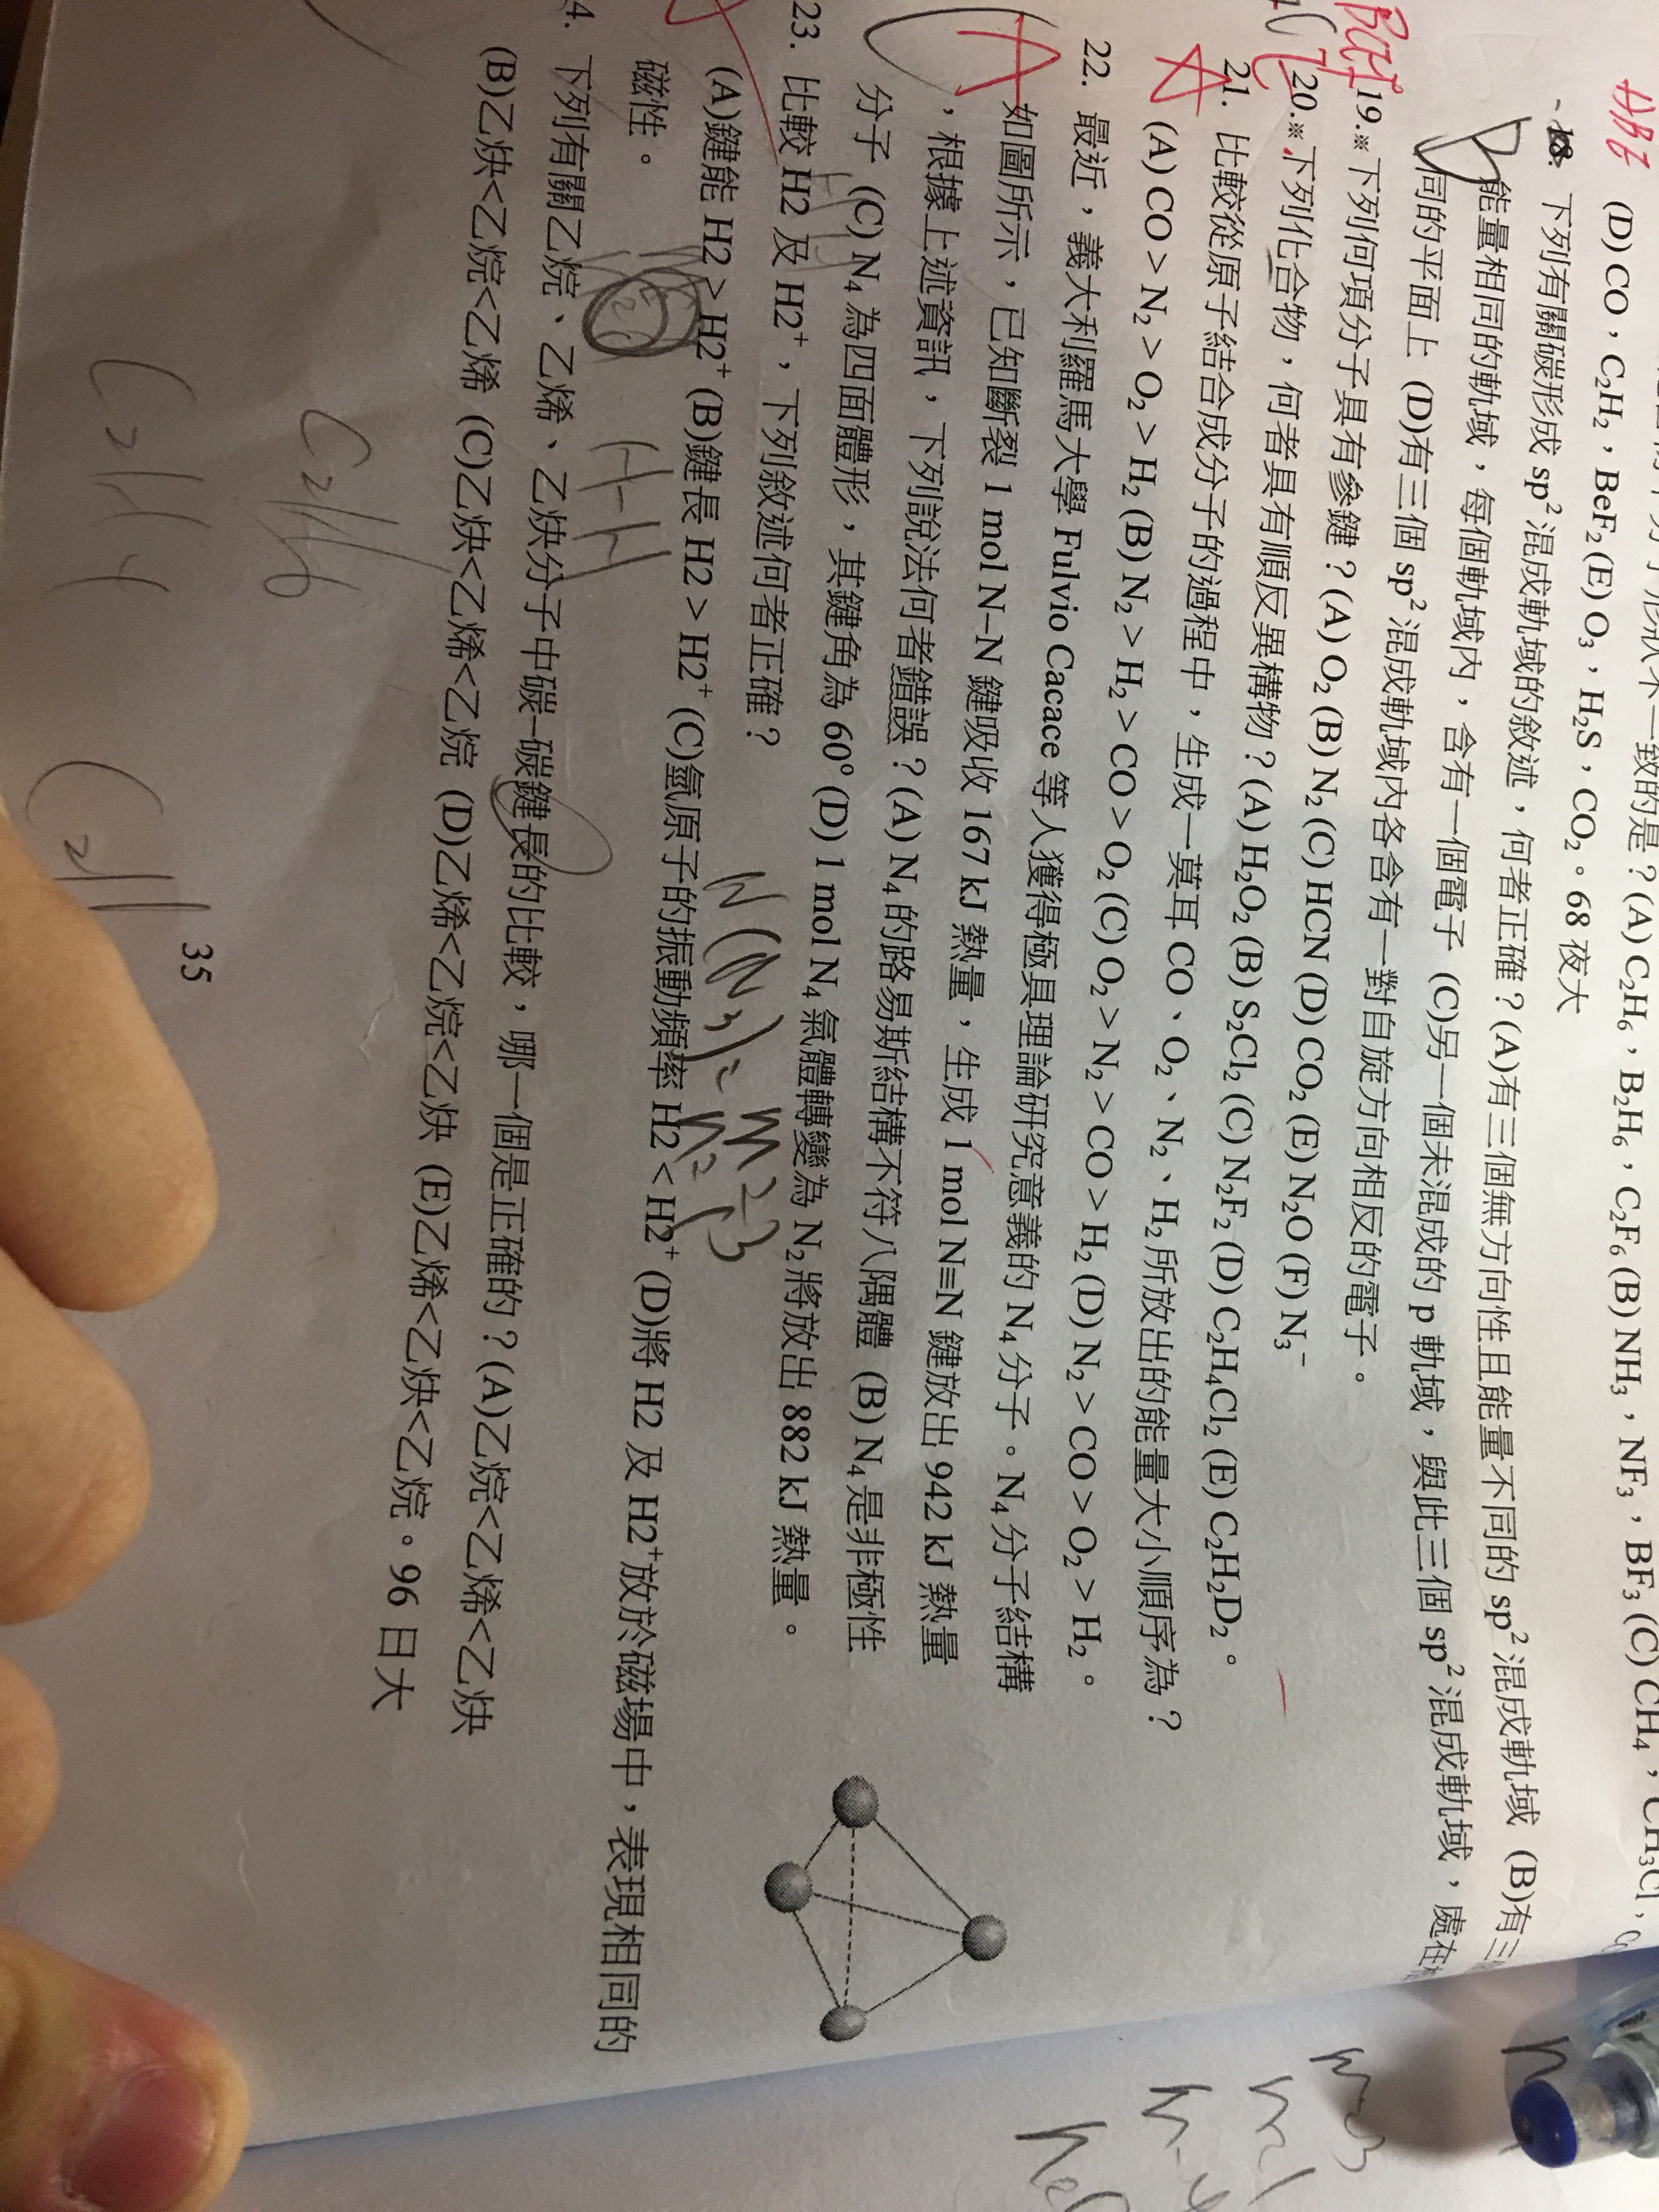 HBE
(D) CO，C₂H₂，BeF₂ (E) O₃，H₂S，CO₂。68 夜大
18. 下列有關碳形成 sp² 混成軌域的敘述，何者正確？(A)有三個無方向性且能量不同的 sp² 混成軌域 (B)有三
能量相同的軌域，每個軌域內，含有一個電子 (C)另一個未混成的 p 軌域，與此三個 sp² 混成軌域，處在
同的平面上 (D)有三個 sp² 混成軌域內各含有一對自旋方向相反的電子。
19.※下列何項分子具有參鍵？(A) O₂ (B) N₂ (C) HCN (D) CO₂ (E) N₂O (F) N₃⁻
20.※下列化合物，何者具有順反異構物？(A) H₂O₂ (B) S₂Cl₂ (C) N₂F₂ (D) C₂H₄Cl₂ (E) C₂H₂D₂。
21. 比較從原子結合成分子的過程中，生成一莫耳 CO、O₂、N₂、H₂ 所放出的能量大小順序為？
(A) CO > N₂ > O₂ > H₂ (B) N₂ > H₂ > CO > O₂ (C) O₂ > N₂ > CO > H₂ (D) N₂ > CO > O₂ > H₂。
22. 最近，義大利羅馬大學 Fulvio Cacace 等人獲得極具理論研究意義的 N₄ 分子。N₄ 分子結構
如圖所示，已知斷裂 1 mol N–N 鍵吸收 167 kJ 熱量，生成 1 mol N≡N 鍵放出 942 kJ 熱量
，根據上述資訊，下列說法何者錯誤？(A) N₄ 的路易斯結構不符八隅體 (B) N₄ 是非極性
分子 (C) N₄ 為四面體形，其鍵角為 60° (D) 1 mol N₄ 氣體轉變為 N₂ 將放出 882 kJ 熱量。
23. 比較 H2 及 H2⁺，下列敘述何者正確？
(A)鍵能 H2 > H2⁺ (B)鍵長 H2 > H2⁺ (C)氫原子的振動頻率 H2 < H2⁺ (D)將 H2 及 H2⁺放於磁場中，表現相同的
磁性。
4. 下列有關乙烷、乙烯、乙炔分子中碳—碳鍵長的比較，哪一個是正確的？(A)乙烷<乙烯<乙炔
(B)乙炔<乙烷<乙烯 (C)乙炔<乙烯<乙烷 (D)乙烯<乙烷<乙炔 (E)乙烯<乙炔<乙烷。96 日大
H-H
C₂H₆
C₂H₄
C₂H
35